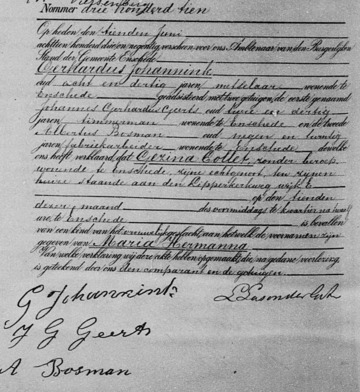 Nommer drie honderd tien
Op heden den tienden Juni
achttien honderd drie en negentig verscheen voor ons Ambtenaar van den Burgerlijken
Stand der Gemeente Enschede
Gerhardus Johannink
oud acht en dertig jaren, metselaar wonende te
Enschede geadsisteerd met twee getuigen, de eerste genaamd
Johannes Gerhardus Geerts oud twee en dertig
jaren, timmerman wonende te Enschede en de tweede
Albertus Bosman oud negen en twintig
jaren, fabriekarbeider wonende te Enschede dewelke
ons heeft verklaard dat Gezina Collet, zonder beroep
wonende te Enschede zijne echtgenoot ten zijnen
huize staande aan den Kipperkerburg wijk E
op den tienden
dezer maand des voormiddags te kwartier na
ure, te Enschede is bevallen
van een kind van het vrouwelijk geslacht, aan hetwelk de voornamen zijn
gegeven van Maria Hermanna
Van welke verklaring wij deze akte hebben opgemaakt, die, na gedane voorlezing,
is geteekend door ons den comparant en de getuigen.
G Johannink
J G Geerts
A Bosman